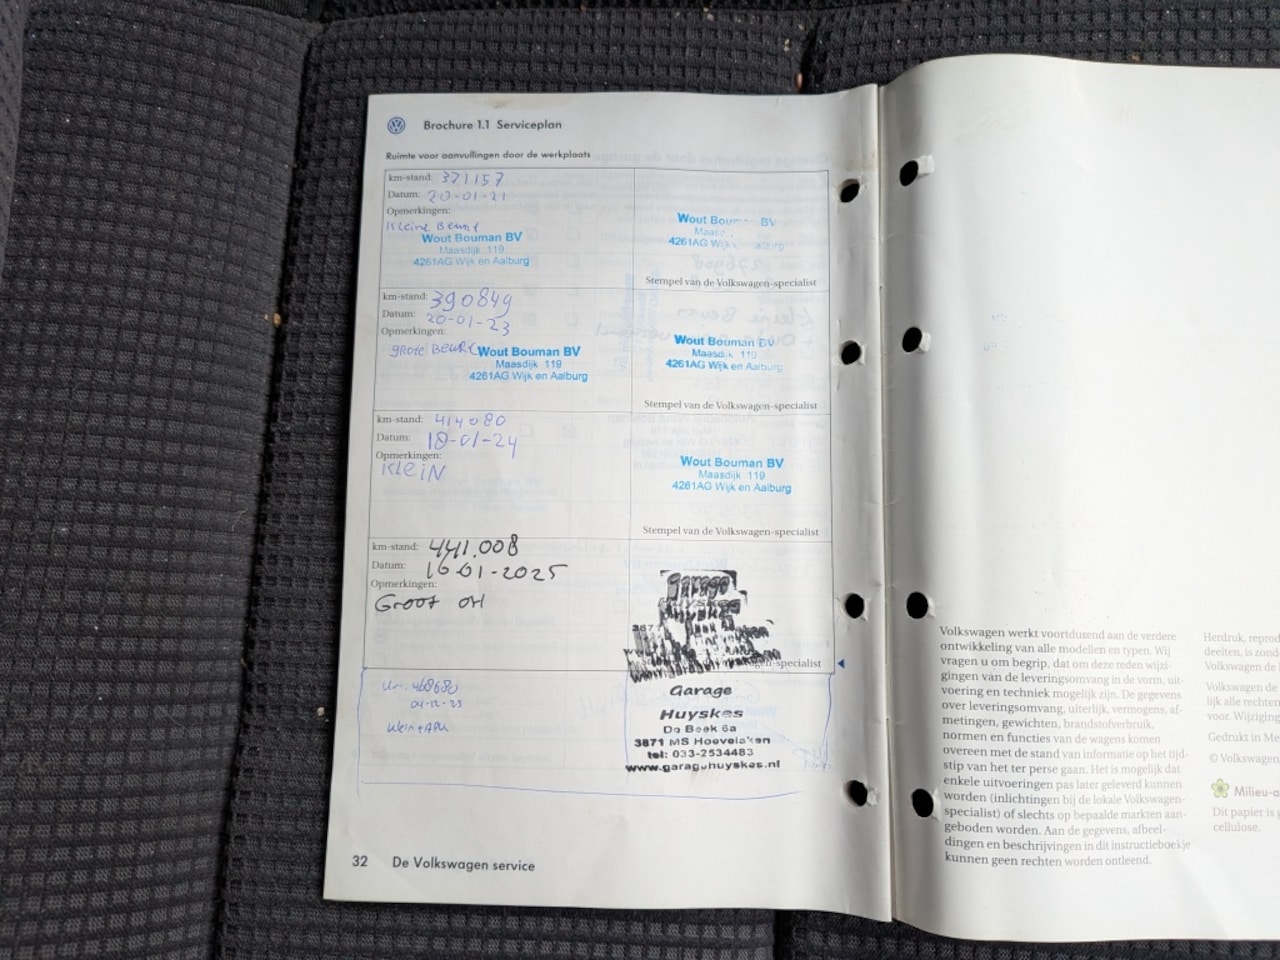 Brochure 1.1 Serviceplan
Ruimte voor aanvullingen door de werkplaats
km-stand: 371157
Datum: 20-01-21
Opmerkingen:
Kleine Beurt
Wout Bouman BV
Maasdijk 119
4261AG Wijk en Aalburg
Wout Bouman BV
4261AG Wijk en Aalburg
Stempel van de Volkswagen-specialist
km-stand: 390849
Datum: 20-01-23
Opmerkingen:
grote Beurt
Wout Bouman BV
Maasdijk 119
4261AG Wijk en Aalburg
Wout Bouman BV
Maasdijk 119
4261AG Wijk en Aalburg
Stempel van de Volkswagen-specialist
km-stand: 414080
Datum: 18-01-24
Opmerkingen:
KLEIN
Wout Bouman BV
Maasdijk 119
4261AG Wijk en Aalburg
Stempel van de Volkswagen-specialist
km-stand: 441.008
Datum: 16-01-2025
Opmerkingen:
Groot OH
Garage
Huyskes
-specialist
468680
04-12-25
Garage
Huyskes
De Beek 6a
3871 MS Hoevelaken
tel: 033-2534483
www.garagehuyskes.nl
32 De Volkswagen service
Volkswagen werkt voortdurend aan de verdere
ontwikkeling van alle modellen en typen. Wij
vragen u om begrip, dat om deze reden wijzi-
gingen van de leveringsomvang in de vorm, uit-
voering en techniek mogelijk zijn. De gegevens
over leveringsomvang, uiterlijk, vermogens, af-
metingen, gewichten, brandstofverbruik,
normen en functies van de wagens komen
overeen met de stand van informatie op het tijd-
stip van het ter perse gaan. Het is mogelijk dat
enkele uitvoeringen pas later geleverd kunnen
worden (inlichtingen bij de lokale Volkswagen-
specialist) of slechts op bepaalde markten aan-
geboden worden. Aan de gegevens, afbeel-
dingen en beschrijvingen in dit instructieboekje
kunnen geen rechten worden ontleend.
Herdruk, reprod
deelten, is zond
Volkswagen de
Volkswagen de
lijk alle rechten
voor. Wijziging
Gedrukt in Me
© Volkswagen
Milieu-a
Dit papier is g
cellulose.